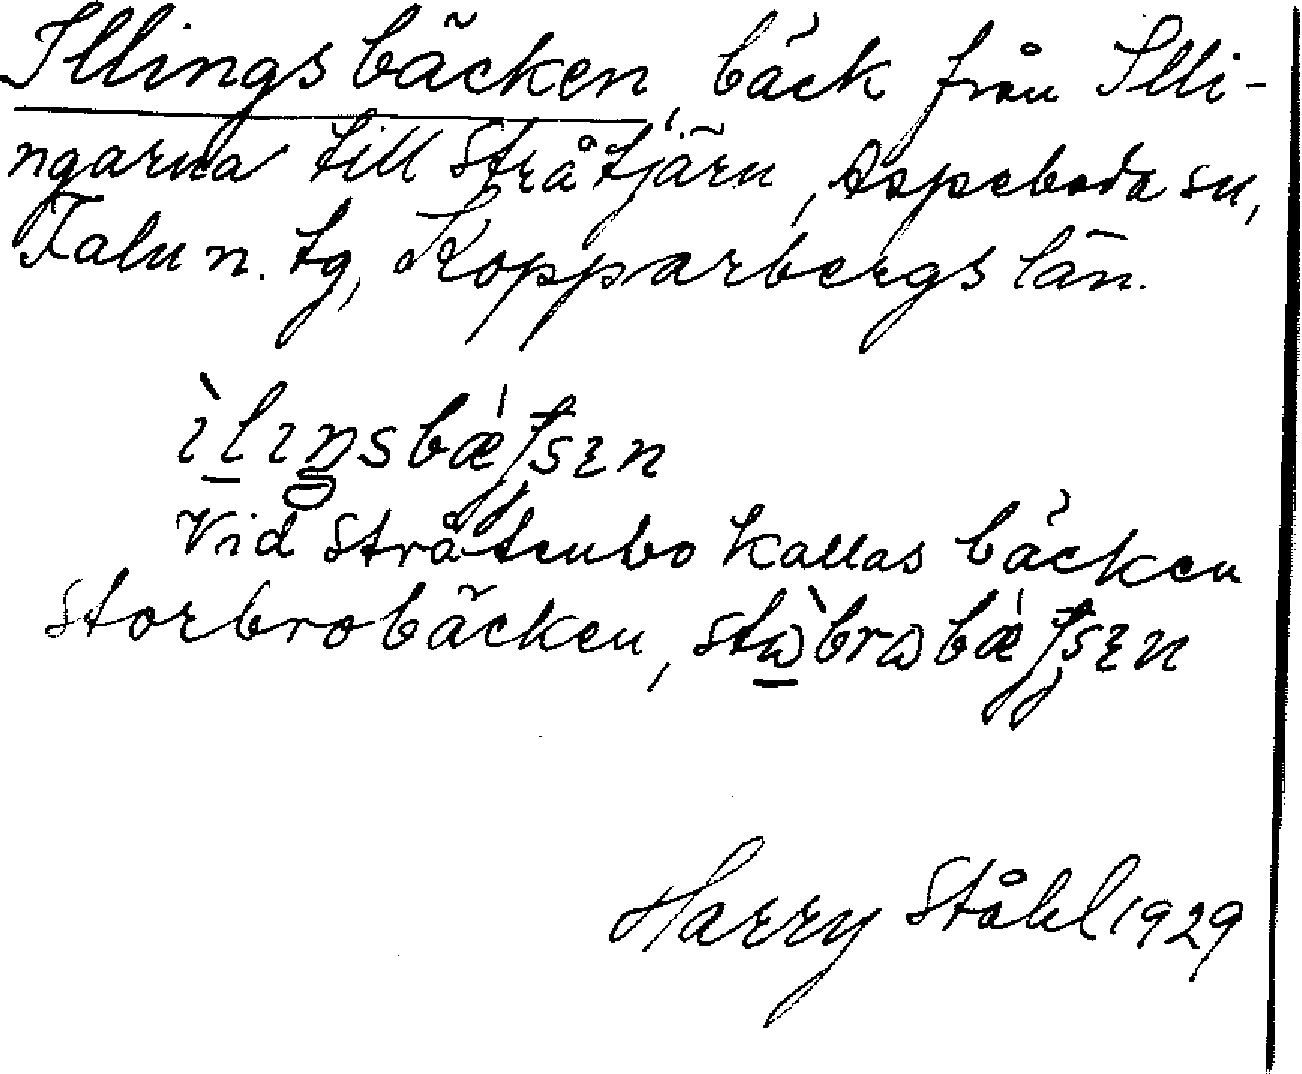 Illingsbäcken, bäck från Illi-
ngarna till Stråtjärn, Aspeboda sn,
Falu n. tg, Kopparbergs län.
Vid Stråtenbo kallas bäcken
Storbrobäcken,
Harry Ståhl 1929